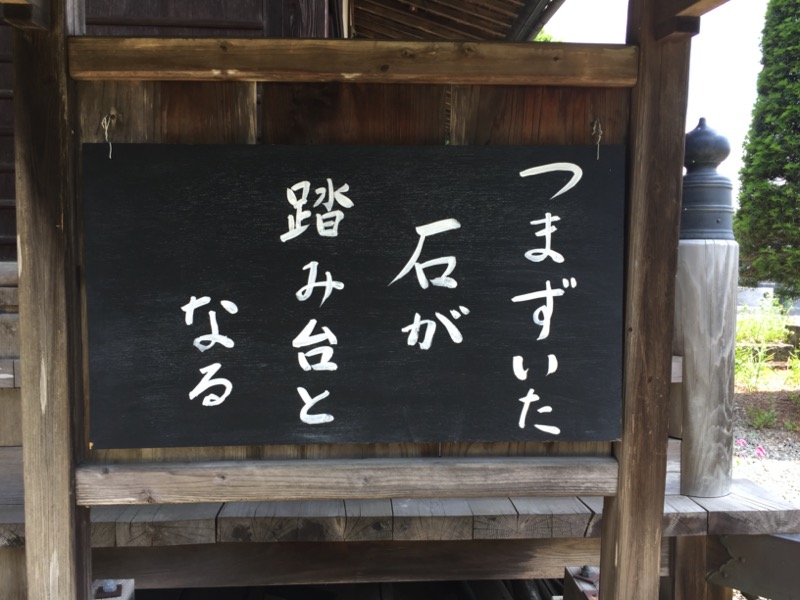 つまずいた
石が
踏み台と
なる